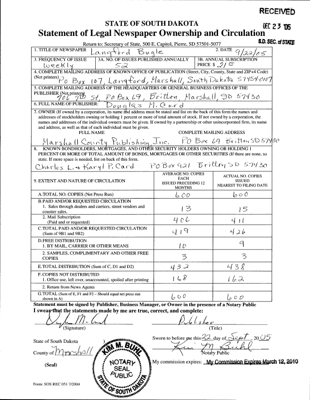 RECEIVED
DEC 23 '05
S.D. SEC. of STATE
STATE OF SOUTH DAKOTA
Statement of Legal Newspaper Ownership and Circulation
Return to: Secretary of State, 500 E. Capitol, Pierre, SD 57501-5077
1. TITLE OF NEWSPAPER Langford Bugle
2. DATE 9/22/05
3. FREQUENCY OF ISSUE weekly
3A. NO. OF ISSUES PUBLISHED ANNUALLY 52
3B. ANNUAL SUBSCRIPTION PRICE $
4. COMPLETE MAILING ADDRESS OF KNOWN OFFICE OF PUBLICATION (Street, City, County, State and ZIP+4 Code) (Not printers)
PO Box 107, Langford, Marshall, South Dakota
5. COMPLETE MAILING ADDRESS OF THE HEADQUARTERS OR GENERAL BUSINESS OFFICES OF THE PUBLISHER (Not printers)
PO Box 69, Britton, Marshall, SD 57430
6. FULL NAME OF PUBLISHER: Douglas M. Card
7. OWNER (If owned by a corporation, its name and address must be stated and also on the back of this form the names and
addresses of stockholders owning or holding 1 percent or more of total amount of stock. If not owned by a corporation, the
names and addresses of the individual owners must be given. If owned by a partnership or other unincorporated firm, its name
and address, as well as that of each individual must be given.
FULL NAME
COMPLETE MAILING ADDRESS
Marshall County Publishing Inc. PO Box 69 Britton SD 57430
8. KNOWN BONDHOLDERS, MORTGAGES, AND OTHER SECURITY HOLDERS OWNING OR HOLDING 1
PERCENT OR MORE OF TOTAL AMOUNT OF BONDS, MORTGAGES OR OTHER SECURITIES (If there are none, so
state. If more space is needed, list on back of this form.
Charles L. & Karyl P. Card PO Box 421 Britton, SD 57430
9. EXTENT AND NATURE OF CIRCULATION
AVERAGE NO. COPIES EACH ISSUED PRECEDING 12 MONTHS
ACTUAL NO. COPIES ISSUED NEAREST TO FILING DATE
A. TOTAL NO. COPIES (Net Press Run) 600 600
B. PAID AND/OR REQUESTED CIRCULATION
1. Sales through dealers and carriers, street vendors and counter sales. 13 15
2. Mail Subscription (Paid and or requested) 406 411
C. TOTAL PAID AND/OR REQUESTED CIRCULATION (Sum of 9B1 and 9B2) 419 426
D. FREE DISTRIBUTION
1. BY MAIL, CARRIER OR OTHER MEANS 10 9
2. SAMPLES, COMPLIMENTARY AND OTHER FREE COPIES 3 3
E. TOTAL DISTRIBUTION (Sum of C, D1 and D2) 432 438
F. COPIES NOT DISTRIBUTED
1. Office use, left over, unaccounted, spoiled after printing 168 162
2. Return from News Agents
G. TOTAL (Sum of E, F1 and F2 - Should equal net press run shown in A) 600 600
Statement must be signed by Publisher, Business Manager, or Owner in the presence of a Notary Public
I swear that the statements made by me are true, correct, and complete:
Publisher
(Signature)
(Title)
State of South Dakota
Sworn to before me this 22 day of Sept, 2005
County of Marshall
Kim M. Buhl
Notary Public
(Seal)
My commission expires: My Commission Expires March 12, 2010
KIM M. BUHL
NOTARY PUBLIC
SEAL
SOUTH DAKOTA
Form: SOS REC 051 7/2004